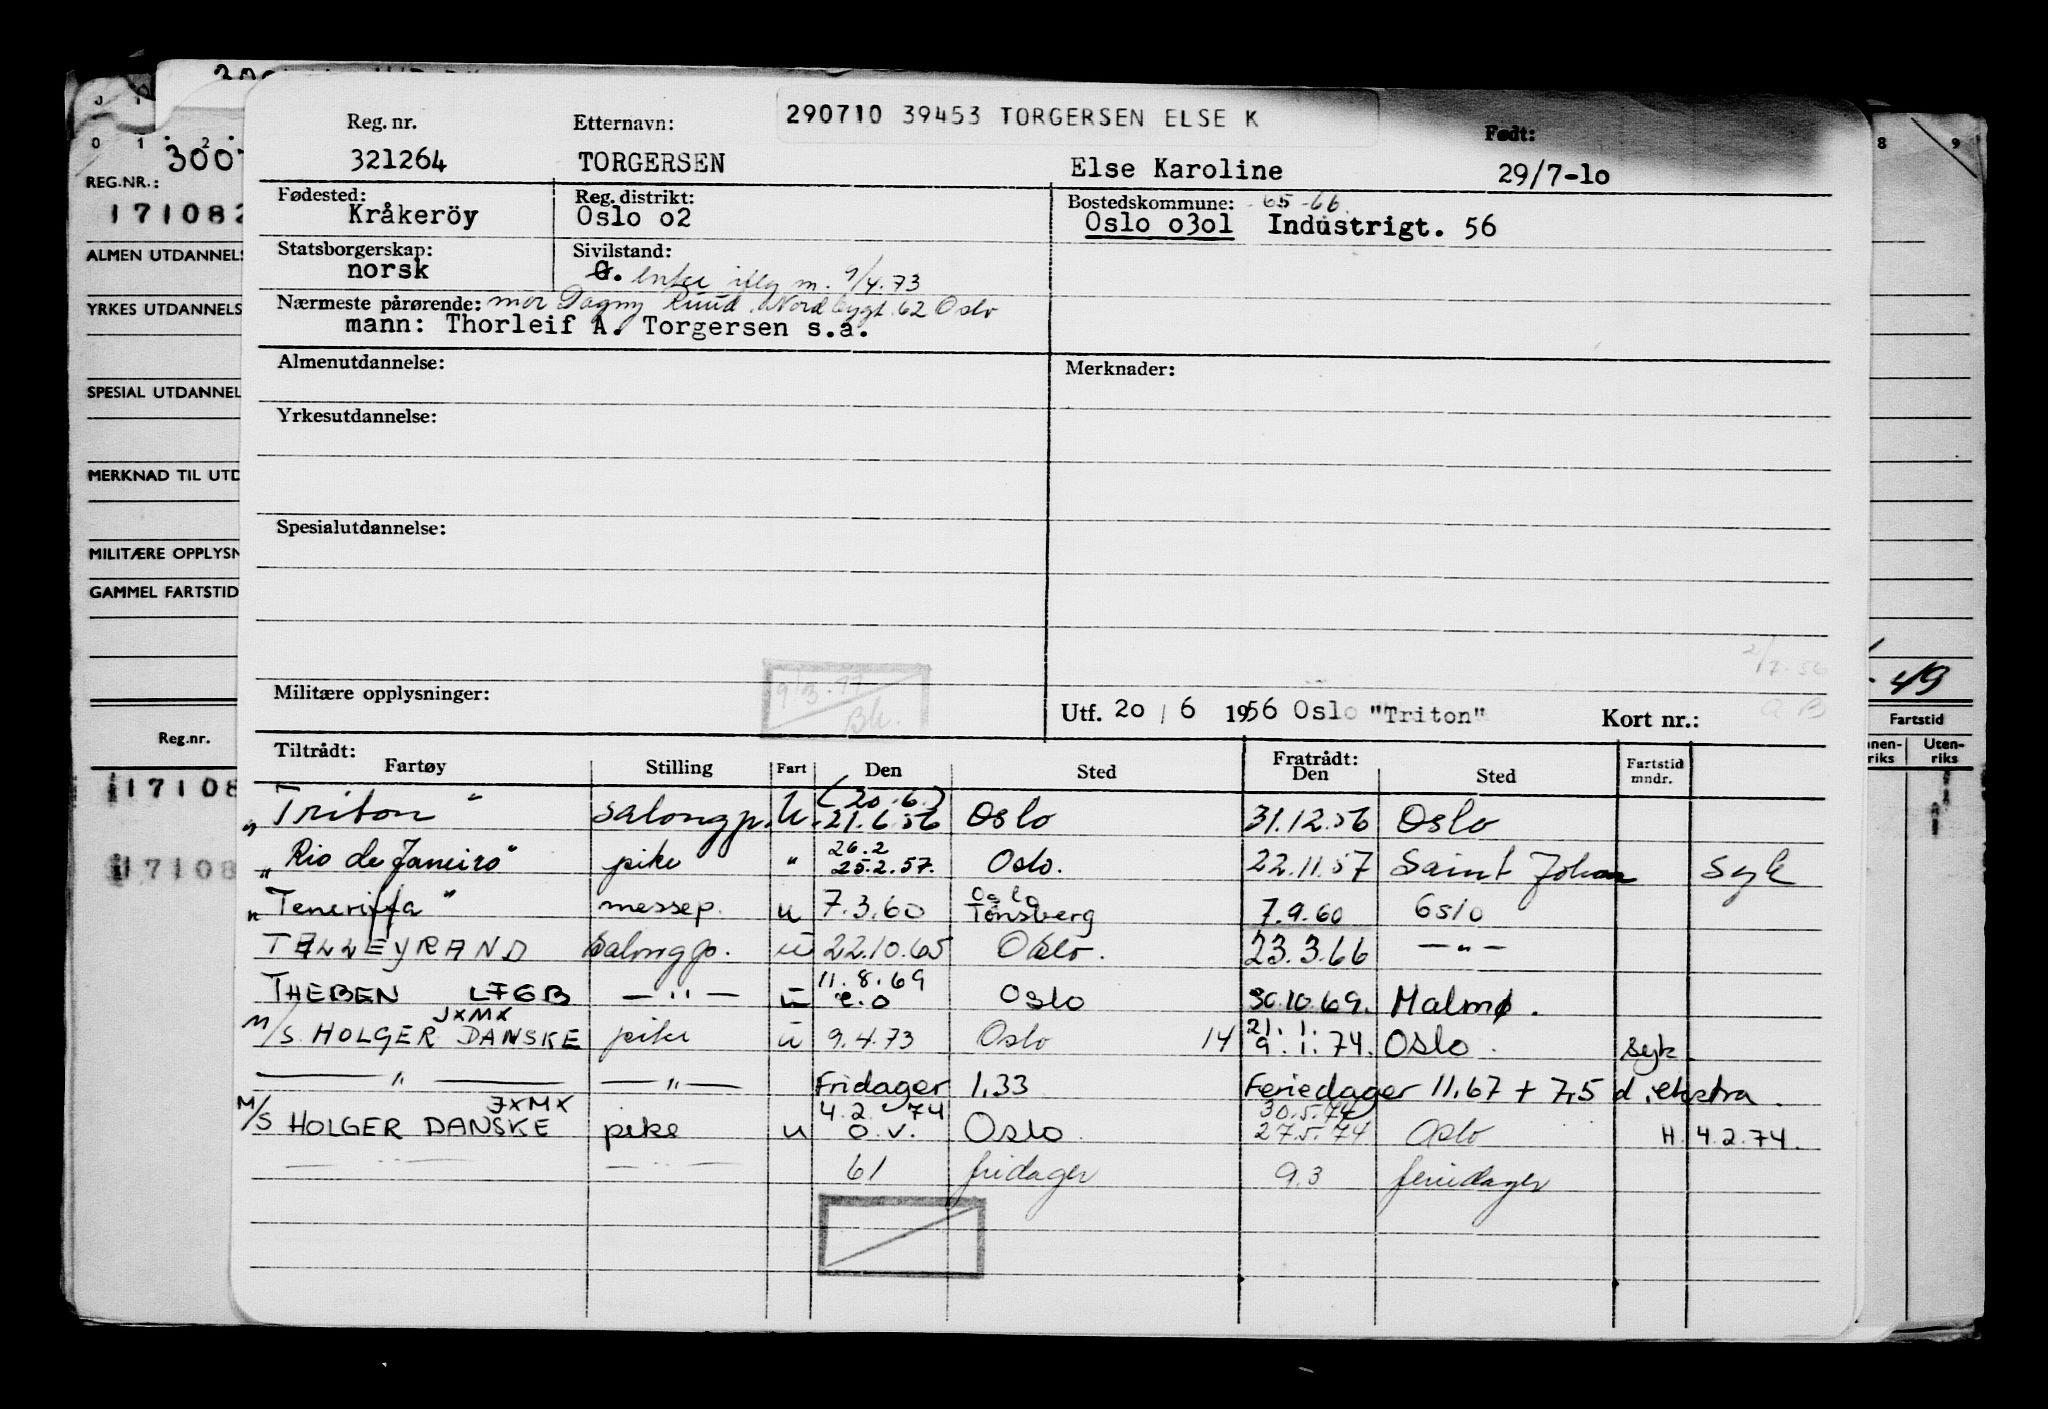 290710 39453 TORGERSEN ELSE K
Reg. nr. Etternavn: Født:
321264 TORGERSEN Else Karoline 29/7-1o
Fødested: Reg. distrikt: Bostedskommune: 65-66.
Kråkeröy Oslo o2 Oslo o3o1 Industrigt. 56
Statsborgerskap: Sivilstand:
norsk G. enke iflg m. 9/4.73
Nærmeste pårørende: mor Dagny Ruud, Nordbygt. 62 Oslo
mann: Thorleif A. Torgersen s.a.
Almenutdannelse: Merknader:
Yrkesutdannelse:
Spesialutdannelse:
2/7-56
9/3-77
Bh.
Militære opplysninger: Utf. 2o / 6 1956 Oslo "Triton" Kort nr.:
Tiltrådt: Fratrådt:
Fartøy Stilling Fart Den Sted Den Sted Fartstid mndr.
(20.6.)
"Triton" salongp. U. 21.6.56 Oslo 31.12.56 Oslo
26.2
"Rio de Janeiro" pike " 25.2.57. Oslo. 22.11.57 Saint Johan Syk
Oslo
"Teneriffa" messep. u 7.3.60 Tønsberg 7.9.60 Oslo
TALLEYRAND Salongp. u 22.10.65 Oslo. 23.3.66 — " —
11.8.69
THEBEN LFGB — " — u e.o Oslo 30.10.69. Malmø.
JXMX 21.1.
M/S HOLGER DANSKE pike u 9.4.73 Oslo 14 9.1.74. Oslo. Syk.
— " — — " — Fridager 1.33 Feriedager 11.67 + 7,5 d. ekstra.
JXMX 4.2.74 30.5.74
M/S HOLGER DANSKE pike u o.v. Oslo 27.5.74 Oslo H. 4.2.74.
— " — — " — 61 fridager 9.3 feriedager
J
0 1 2
3007
REG.NR.:
171082
ALMEN UTDANNELS
YRKES UTDANNELS
SPESIAL UTDANNEL
MERKNAD TIL UTD
MILITÆRE OPPLYSN
GAMMEL FARTSTID
Reg.nr.
17108
17108
8 9
- 49
Fartstid
nnen-riks Uten-riks